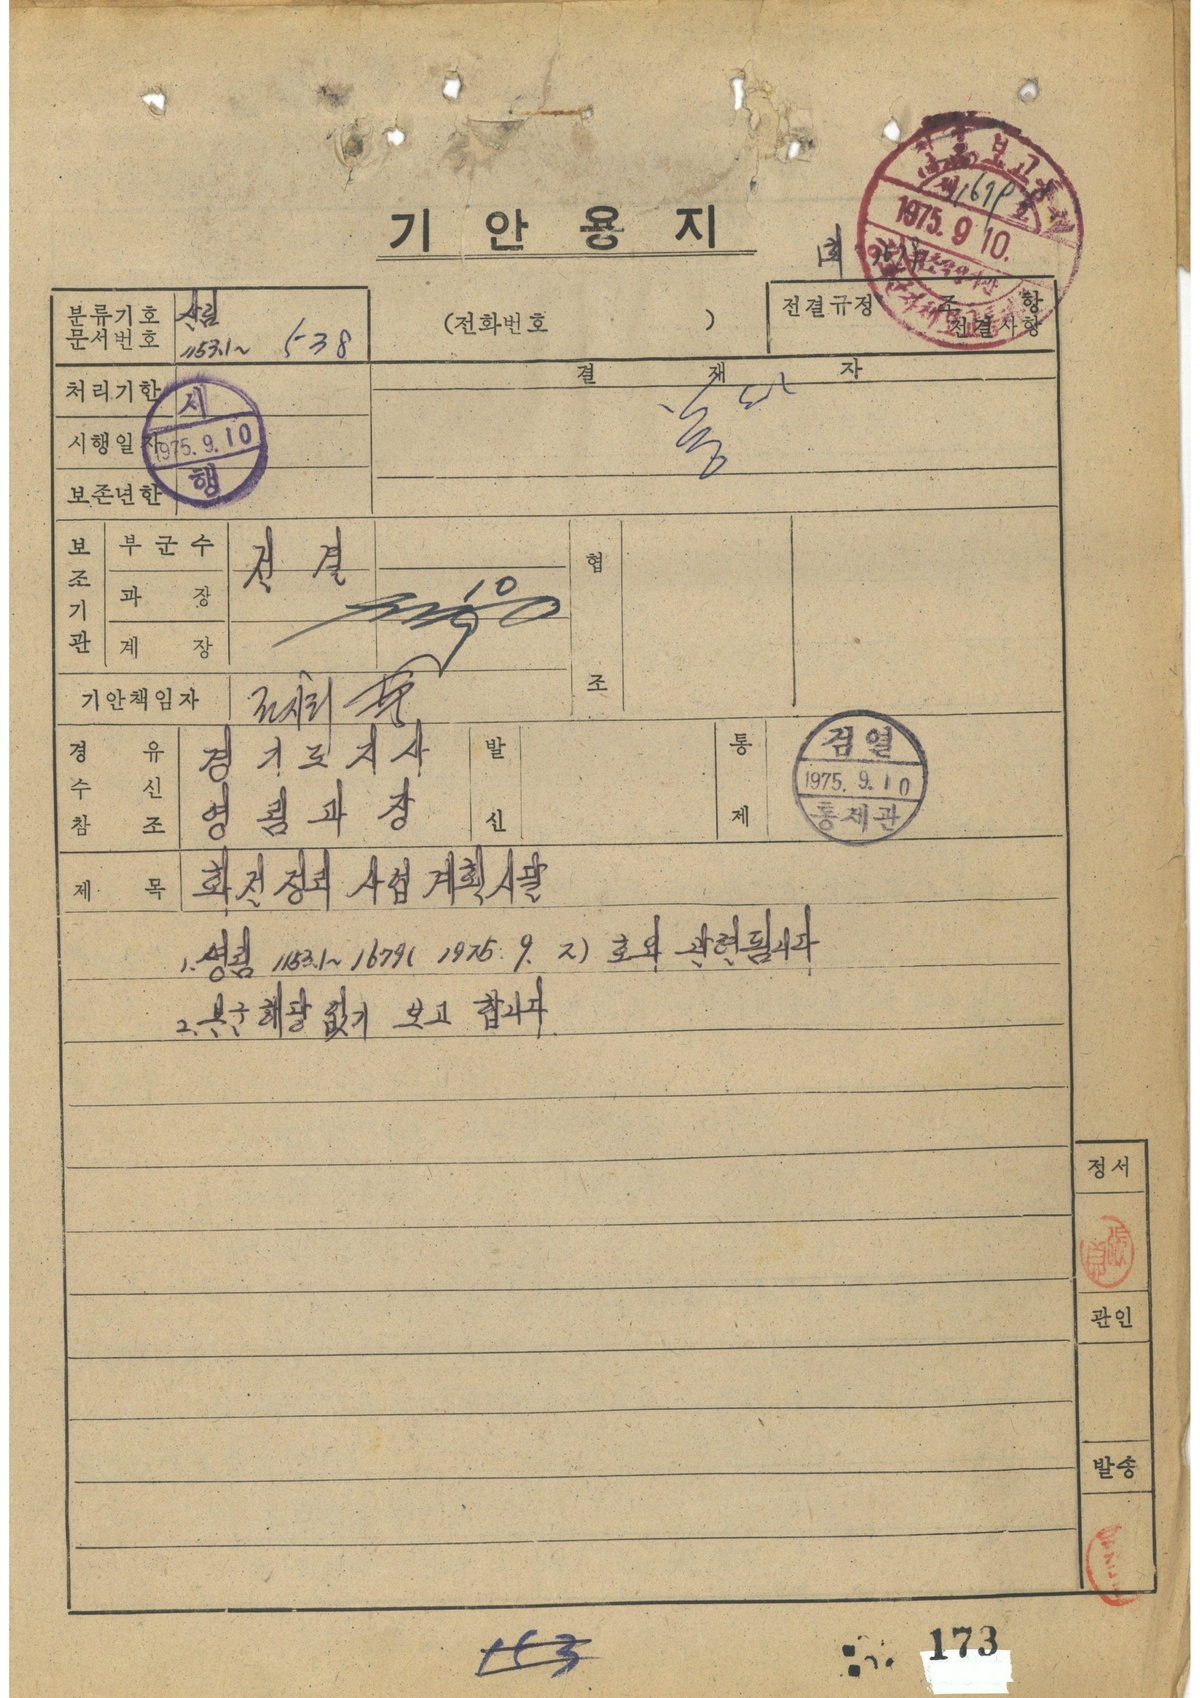 기 안 용 지
보고통제
1975. 9 10.
분류기호
문서번호
산림
1153.1~ 538
(전화번호 )
전결규정 조 항
전결사항
처리기한
시행일자
보존년한
시
1975. 9. 10
행
결 재 자
보조기관
부 군 수
과 장
계 장
전 결
10
협 조
기안책임자
경 유
수 신
참 조
경 기 도 지 사
영 림 과 장
발 신
통 제
검 열
1975. 9. 10
통제관
제 목
화전정리 사업 계획시달
1. 영림 1153.1~ 1679( 1975. 9. 2) 호와 관련됩니다
2. 본군 해당 없기 보고 합니다
정서
관인
발송
153
173